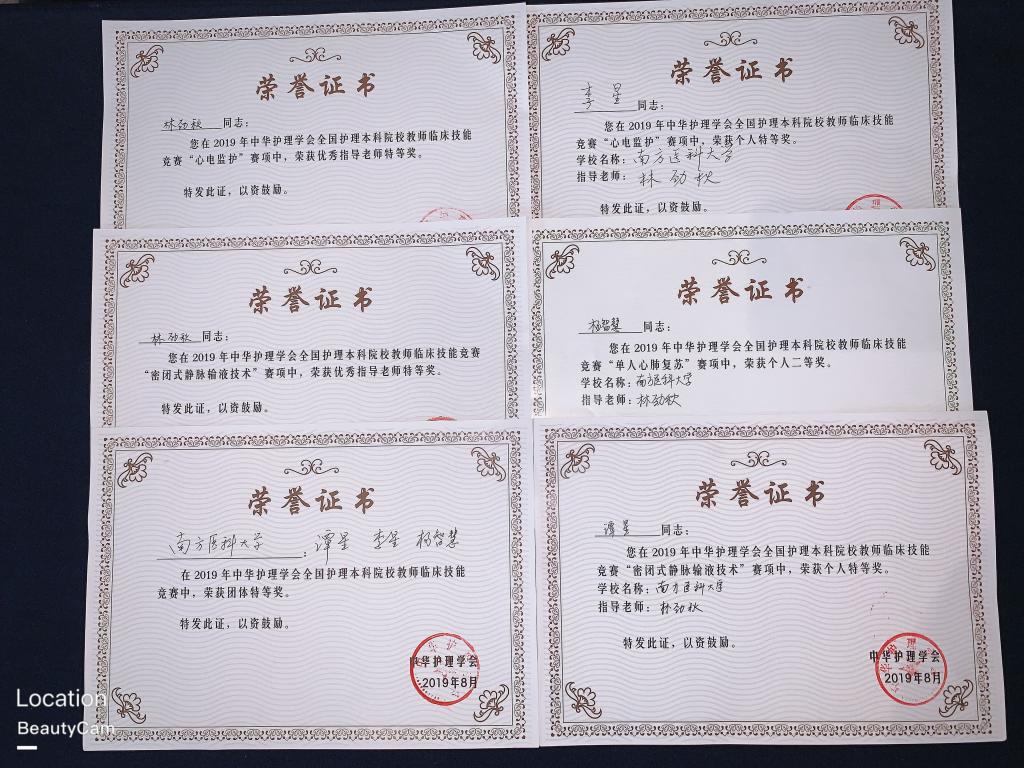 荣誉证书
林劲秋 同志：
您在 2019 年中华护理学会全国护理本科院校教师临床技能
竞赛“心电监护”赛项中，荣获优秀指导老师特等奖。
特发此证，以资鼓励。
荣誉证书
李星 同志：
您在 2019 年中华护理学会全国护理本科院校教师临床技能
竞赛“心电监护”赛项中，荣获个人特等奖。
学校名称：南方医科大学
指导老师：林劲秋
特发此证，以资鼓励。
荣誉证书
林劲秋 同志：
您在 2019 年中华护理学会全国护理本科院校教师临床技能竞赛
“密闭式静脉输液技术”赛项中，荣获优秀指导老师特等奖。
特发此证，以资鼓励。
荣誉证书
杨智慧 同志：
您在 2019 年中华护理学会全国护理本科院校教师临床技能
竞赛“单人心肺复苏”赛项中，荣获个人二等奖。
学校名称：南方医科大学
指导老师：林劲秋
荣誉证书
南方医科大学：谭星 李星 杨智慧
在 2019 年中华护理学会全国护理本科院校教师临床技能
竞赛中，荣获团体特等奖。
特发此证，以资鼓励。
中华护理学会
2019年8月
荣誉证书
谭星 同志：
您在 2019 年中华护理学会全国护理本科院校教师临床技能
竞赛“密闭式静脉输液技术”赛项中，荣获个人特等奖。
学校名称：南方医科大学
指导老师：林劲秋
特发此证，以资鼓励。
中华护理学会
2019年8月
Location
BeautyCam